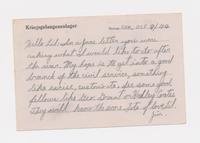 Kriegsgefangenenlager Datum: Oct 9/44
Hello Lil: In a past letter you were
asking what I would like to do after
the war. My hope is to get into a good
branch of the civil service, something
like excise, customs etc. See some good
fellows like Geo. Grant or Coates
They would know the score. Lots of love Lil.
Jim.